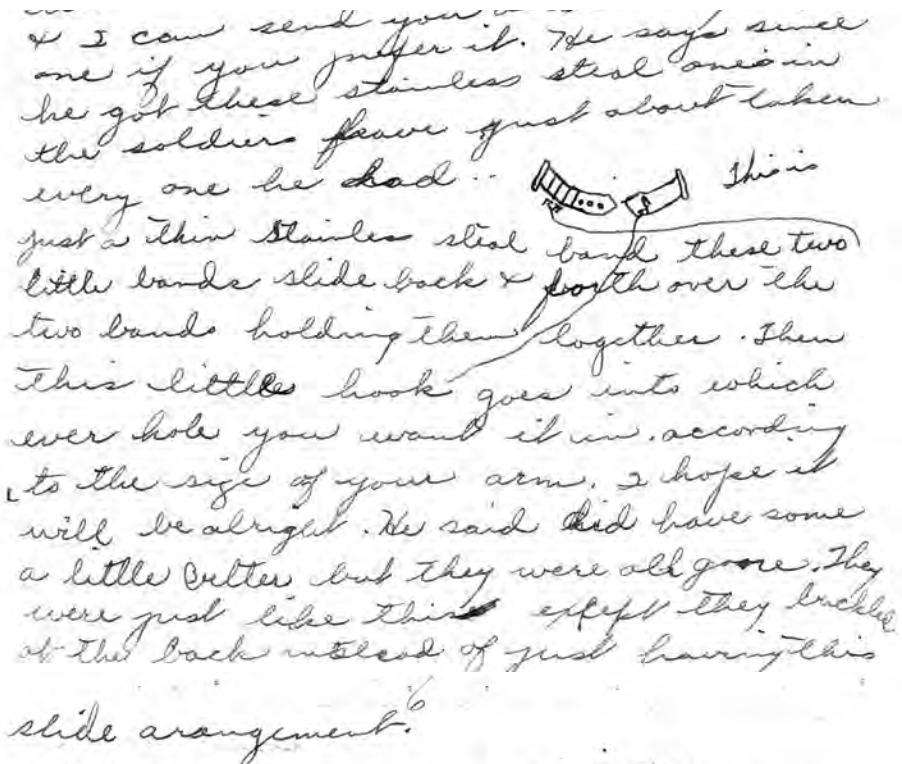 & I can send you
one if you prefer it. He says since
he got these stainless steal ones in
the soldiers have just about taken
every one he had.. This is
just a thin stainles steal band these two
little bands slide back & forth over the
two bands holding them together. Then
this little hook goes into which
ever hole you want it in. according
to the size of your arm. I hope it
will be alright. He said did have some
a little better but they were all gone. They
were just like this except they buckled
at the back instead of just having this
slide arangement.6